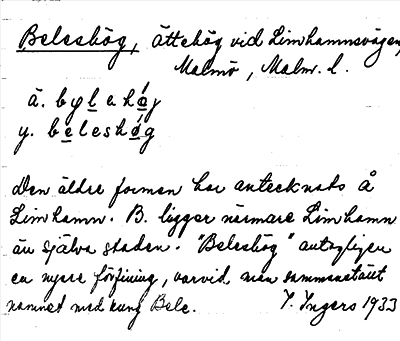 Beleshög, ättehög vid Limhamnsvägen,
Malmö, Malm. l.
ä. bylahöj
y. beleshög
Den äldre formen har antecknats å
Limhamn. B. ligger närmare Limhamn
än själva staden. "Beleshög" antagligen
en nyare förfining, varvid man sammanställt
namnet med kung Bele. I. Ingers 1933